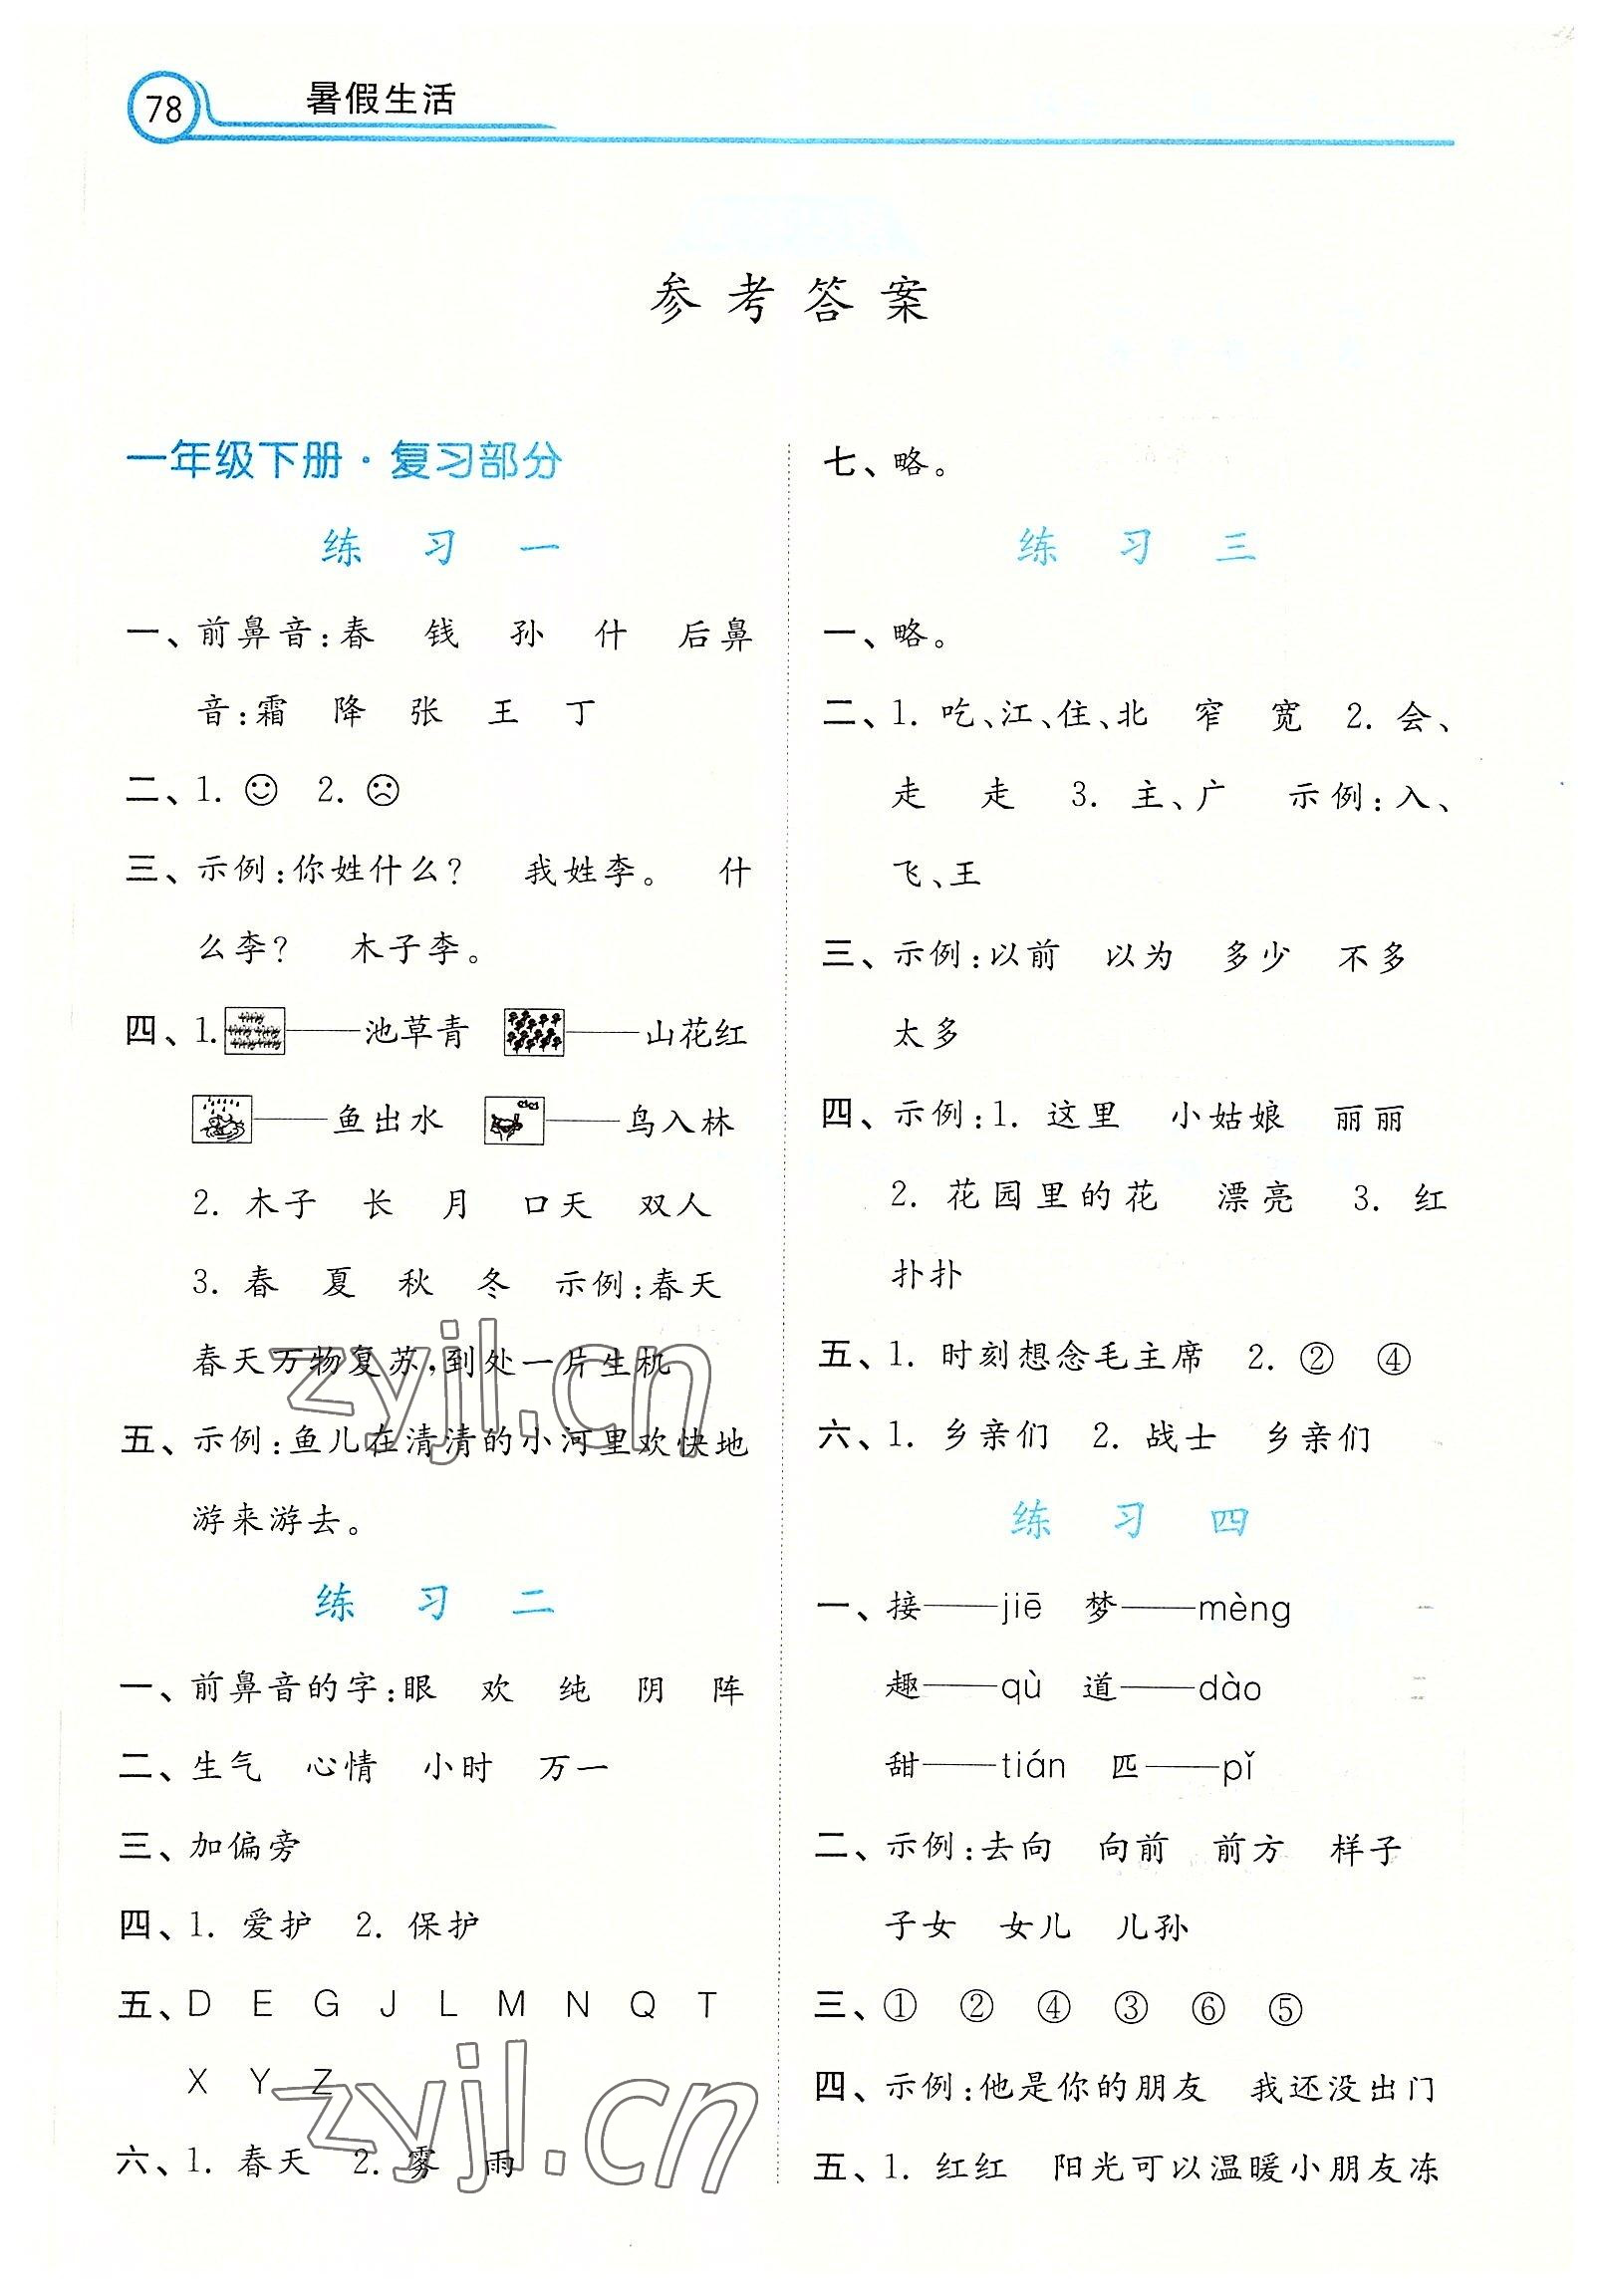 78
暑假生活
参考答案
一年级下册·复习部分
练习一
一、前鼻音:春 钱 孙 什 后鼻
音:霜 降 张 王 丁
二、1. ☺ 2. ☹
三、示例:你姓什么? 我姓李。 什
么李? 木子李。
四、1. ——池草青 ——山花红
——鱼出水 ——鸟入林
2. 木子 长 月 口天 双人
3. 春 夏 秋 冬 示例:春天
春天万物复苏,到处一片生机
五、示例:鱼儿在清清的小河里欢快地
游来游去。
练习二
一、前鼻音的字:眼 欢 纯 阴 阵
二、生气 心情 小时 万一
三、加偏旁
四、1. 爱护 2. 保护
五、D E G J L M N Q T
X Y Z
六、1. 春天 2. 雾 雨
七、略。
练习三
一、略。
二、1. 吃、江、住、北 窄 宽 2. 会、
走 走 3. 主、广 示例:入、
飞、王
三、示例:以前 以为 多少 不多
太多
四、示例:1. 这里 小姑娘 丽丽
2. 花园里的花 漂亮 3. 红
扑扑
五、1. 时刻想念毛主席 2. ② ④
六、1. 乡亲们 2. 战士 乡亲们
练习四
一、接——jiē 梦——mèng
趣——qù 道——dào
甜——tián 匹——pǐ
二、示例:去向 向前 前方 样子
子女 女儿 儿孙
三、① ② ④ ③ ⑥ ⑤
四、示例:他是你的朋友 我还没出门
五、1. 红红 阳光可以温暖小朋友冻
zyjl.cn
zyjl.cn